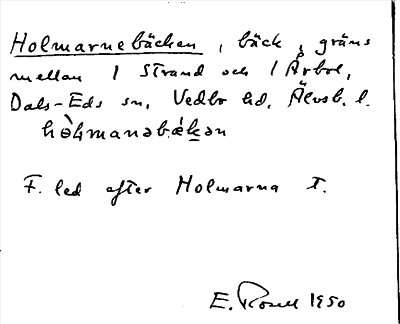 Holmarnebäcken, bäck, gräns
mellan 1 Strand och 1 Årbol,
Dals-Eds sn, Vedbo hd, Älvsb. l.
F. led after Holmarna T.
E. Rosell 1950